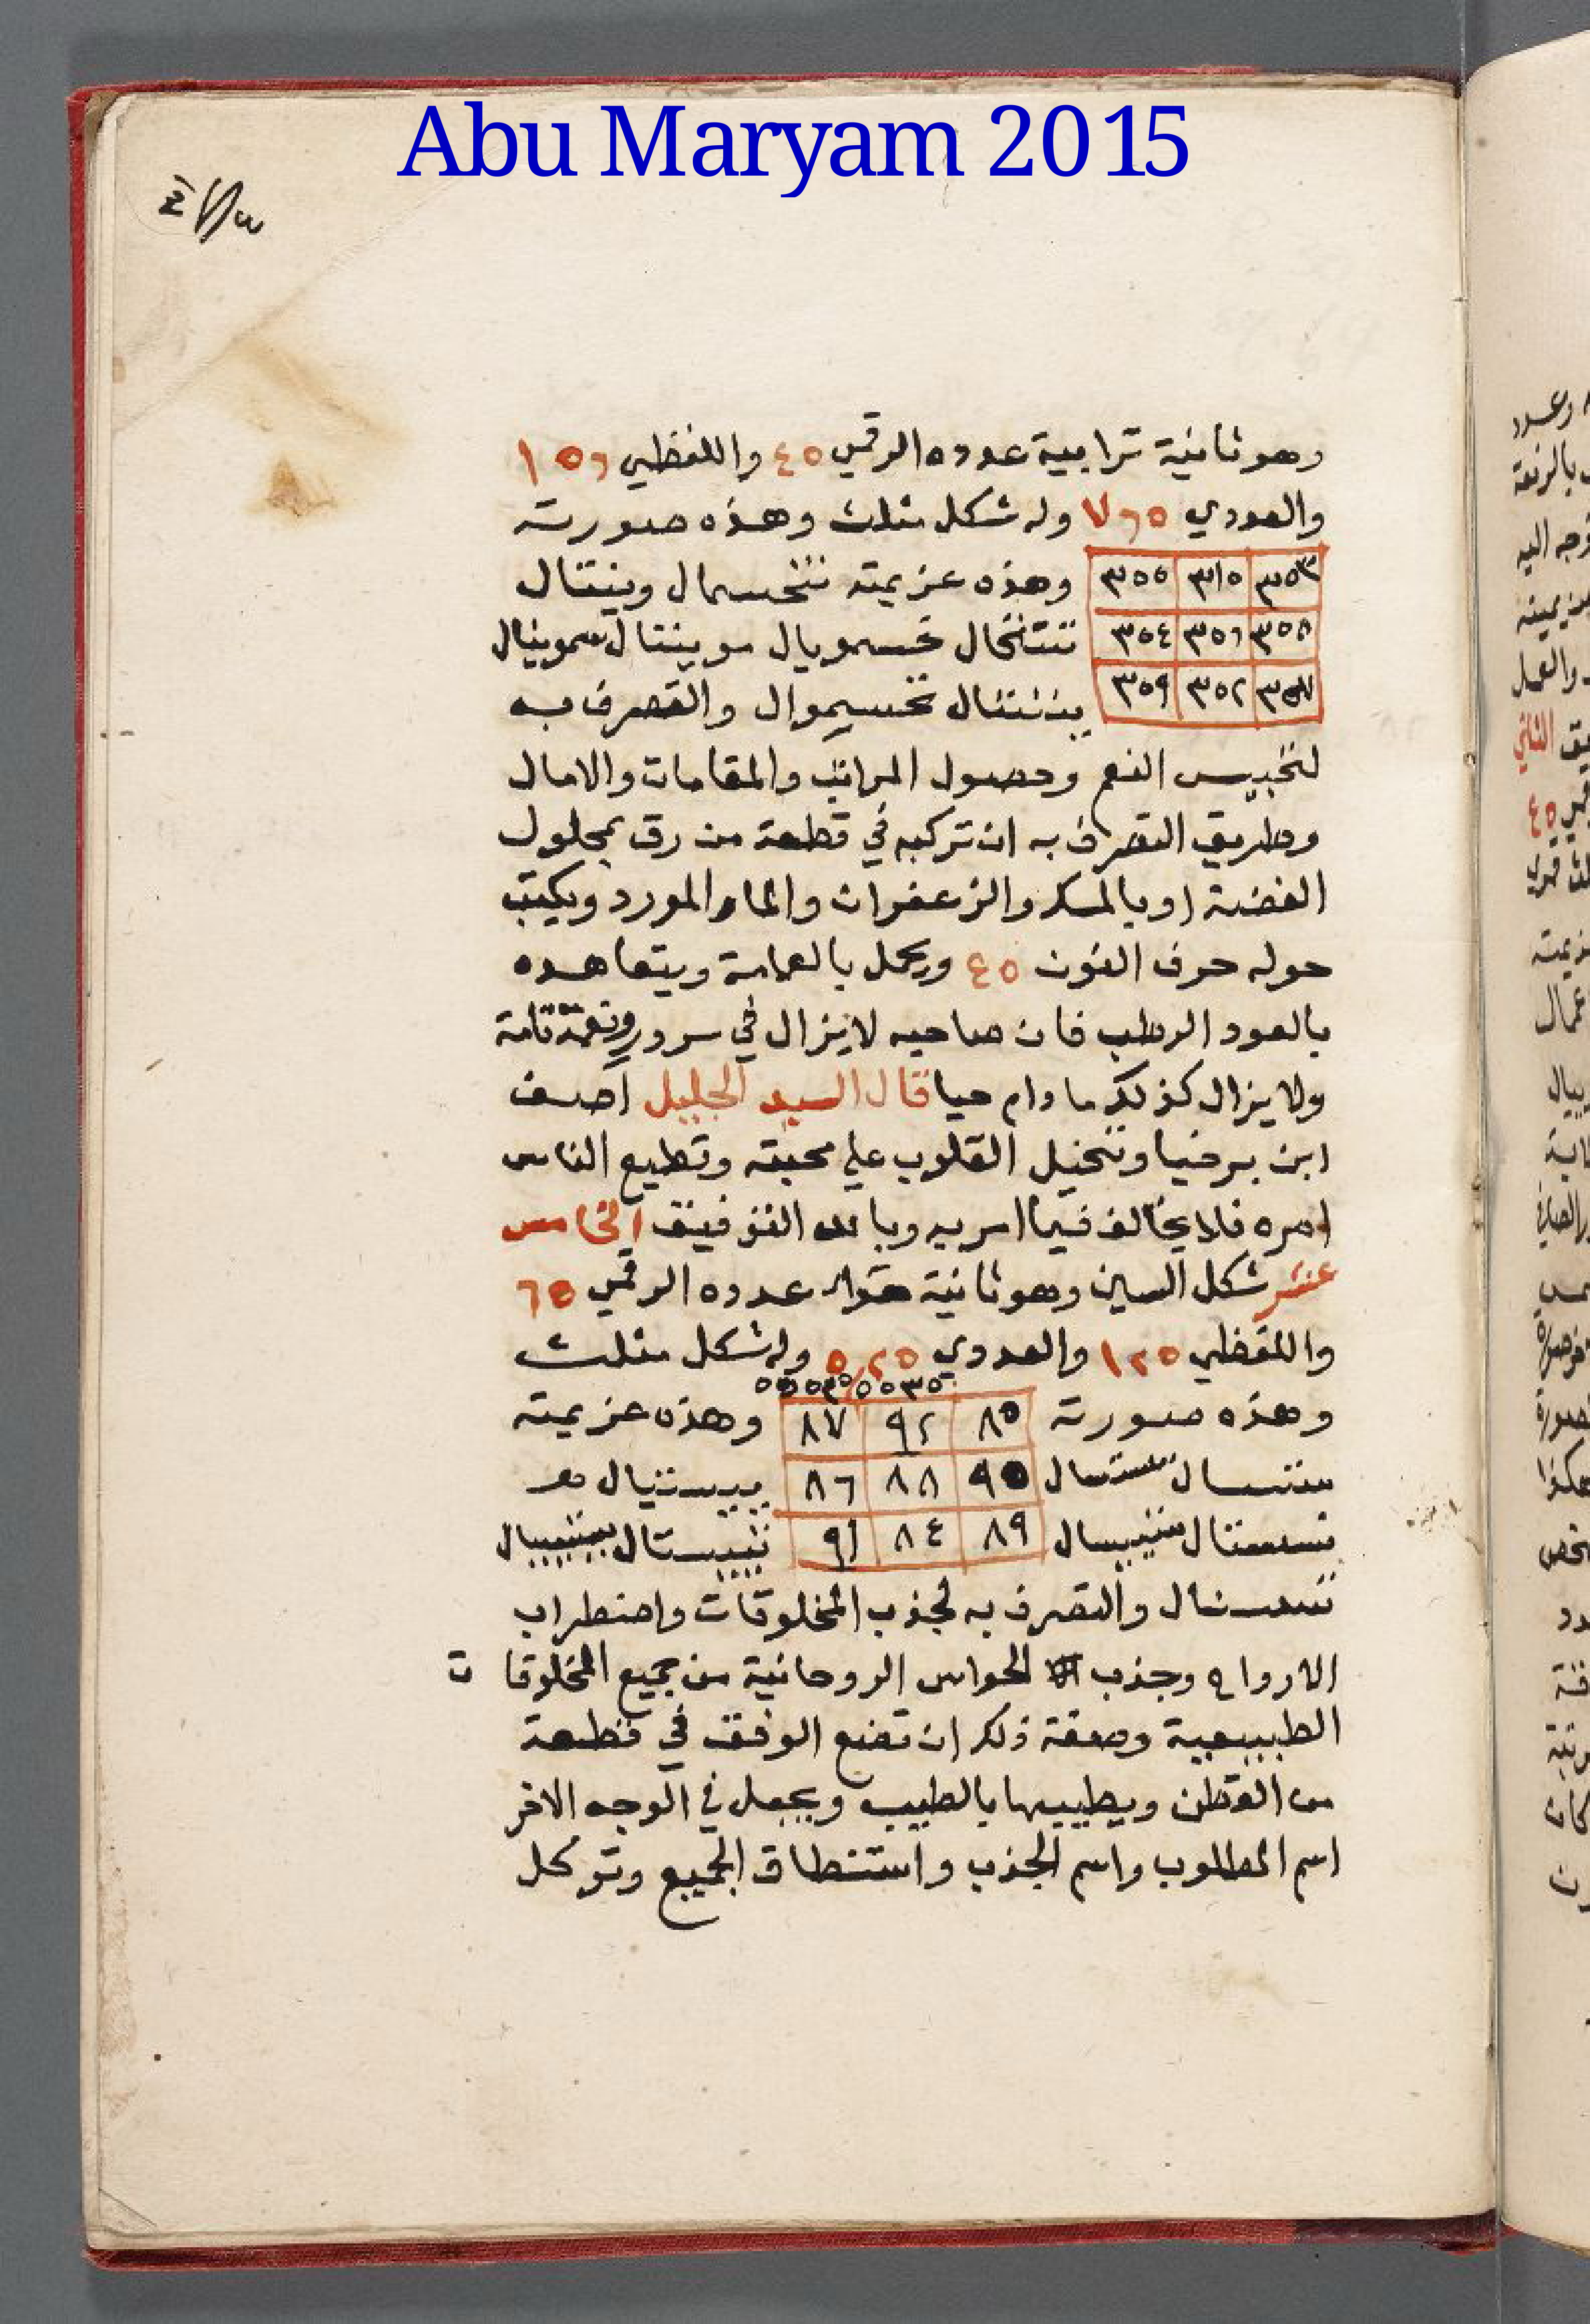 Abu Maryam 2015
وهو ثانية ترابية عدده الرقمي ٤٥ واللفظي ١٥٦
والعددي ٧٦٥ وله شكل مثلث وهذه صورته
٣٥٣ ٣١٥ ٣٥٥ وهذه عزيمته
٣٥٨ ٣٥٦ ٣٥٤
٣٥٧ ٣٥٢ ٣٥٩ والتصرف به
النعم وحصول المراتب والمقامات والامال
وطريق التصرف به ان تركبه في قطعة من رق بمحلول
الفضة او بالمسك والزعفران والماء المورد ويكتب
حوله حرف النون ٤٥ ويحمل بالعمامة ويتعاهده
بالعود الرطب فان صاحبه لا يزال في سرور ونعمة تامة
ولا يزال كذلك ما دام حيا قال السيد الجليل اصف
ابن برخيا وتنحيل القلوب علي محبته وتطيع الناس
امره فلا يخالف فيما امر به وبالله التوفيق الخامس
عشر شكل السين وهو ثانية عدده الرقمي ٦٥
واللفظي ١٢٥ والعددي ٥٢٥ وله شكل مثلث
وهذه صورته ٨٥ ٩٢ ٨٧ وهذه عزيمته
٩٥ ٨٨ ٨٦
٨٩ ٨٤ ٩١
والتصرف به لجذب المخلوقات واضطراب
الارواح وجذب الحواس الروحانية من جميع المخلوقات
الطبيعية وصفة ذلك ان تضع الوفق في قطعة
من القطن ويطيبها بالطيب ويجعل في الوجه الاخر
اسم المطلوب واسم الجذب واستنطاق الجميع وتوكل